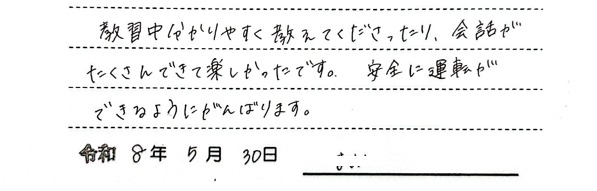 教習中分かりやすく教えてくださったり、会話が
たくさんできて楽しかったです。 安全に運転が
できるようにがんばります。
令和 8年 5月 30日